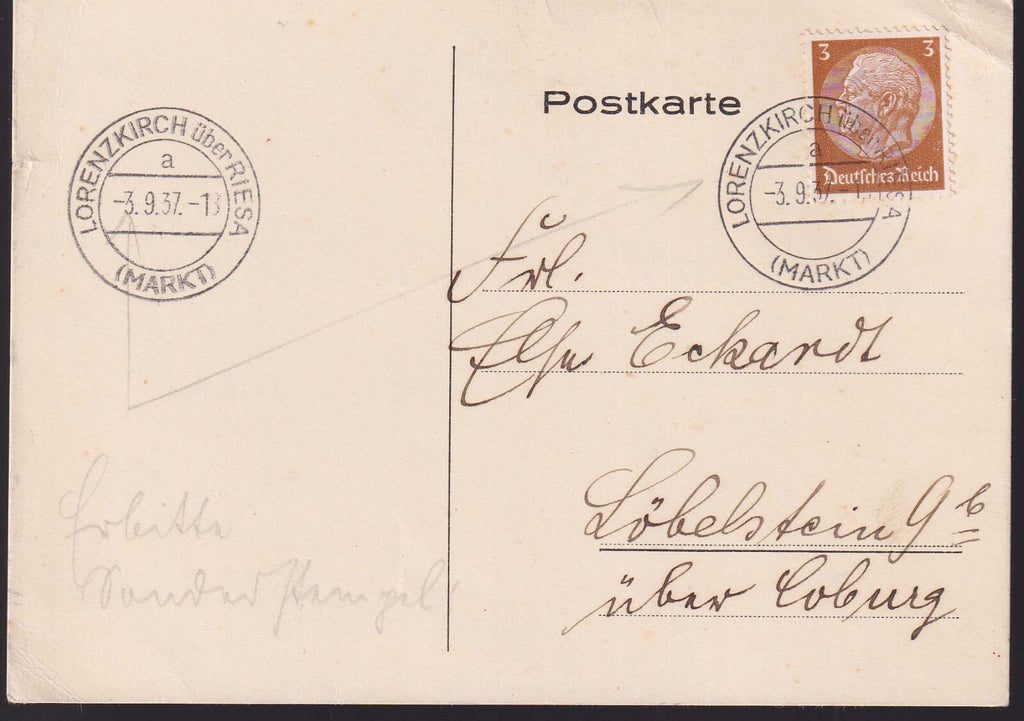 Postkarte
3 3
Deutsches Reich
LORENZKIRCH über RIESA
a
-3.9.37.-13
(MARKT)
LORENZKIRCH über RIESA
a
-3.9.37.-13
(MARKT)
Frl.
Else Eckardt
Löbelstein 9 b
über Coburg
Erbitte
Sonderstempel